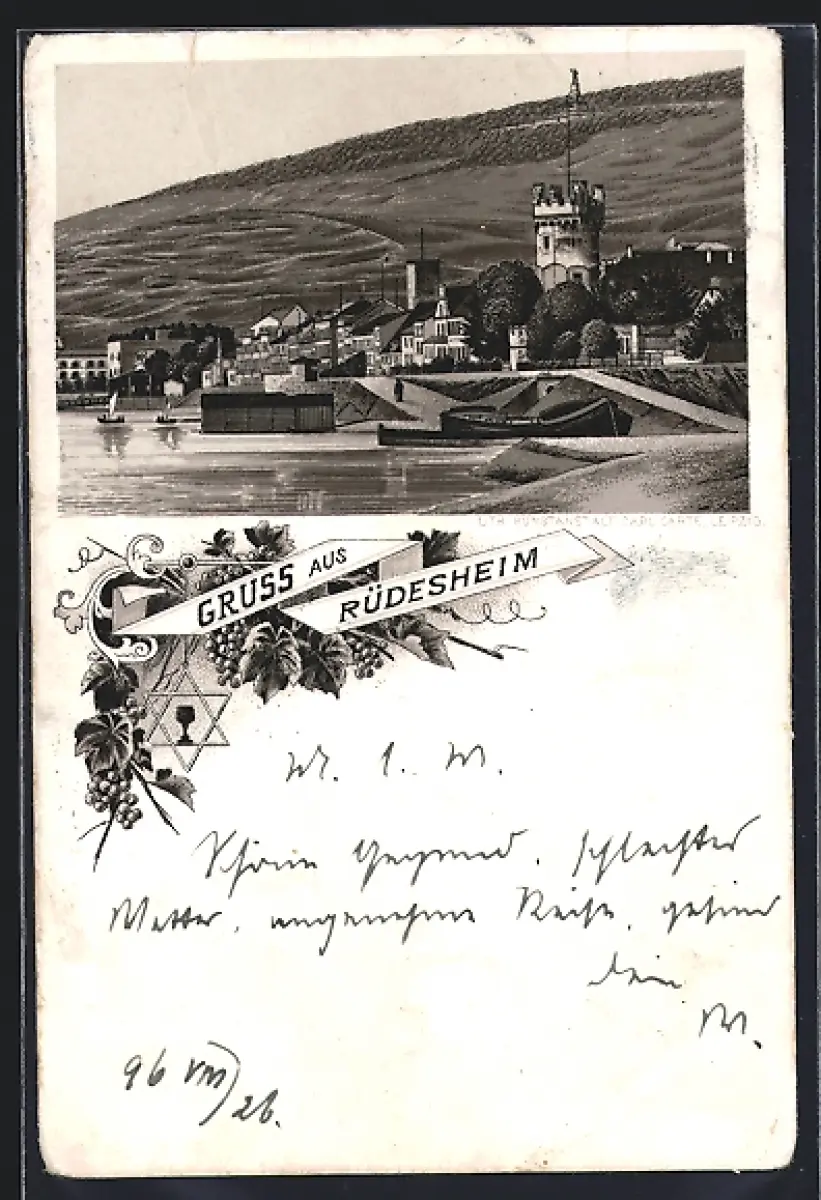 LITH. KUNSTANSTALT CARL GARTE, LEIPZIG.
GRUSS AUS
RÜDESHEIM
M. l. M.
Schöne Gegend, schlechtes
Wetter, angenehme Reise, gesund
Dein
M.
96 VIII/26.